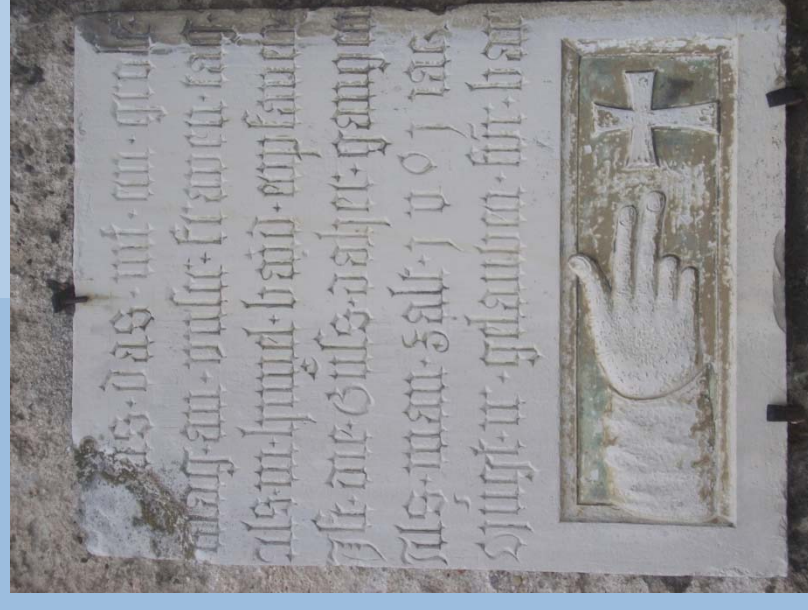 as · das · nit · an · gross
klag · an · unser · frawen · tag
als · in · hymel · bard · enpfangen
Ist · die · Güss · daher · gangen
Als · man · zalt · 1 5 0 1 iar
Mügt · ir · gelauben · für · bar